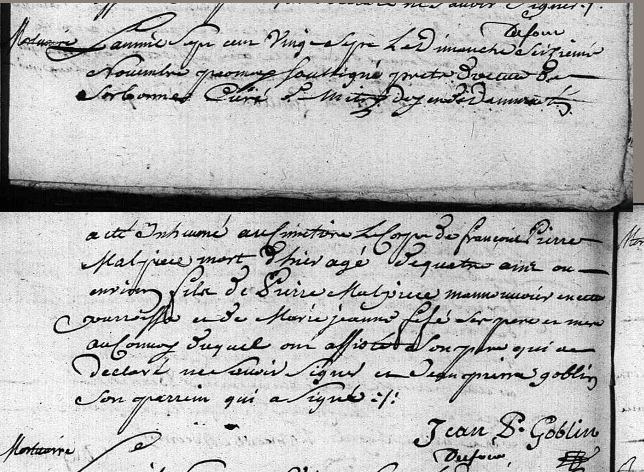 ne savoir signer ./.
Dufour
Mortuaire L'année sept cent vingt sept Le Dimanche seizieme
Novembre par moy soussigné pretre docteur de
Sorbonne Curé St doyen de
a eté Inhumé au Cimetiere Le Corps de françois Pierre
Malpiece mort d'hier agé de quatre ans ou
environ fils de Pierre Malpiece mannouvrier en cette
parroisse et de Marie jeanne ses pere et mere
au Convoy duquel ont assisté Son pere qui a
declaré ne Savoir Signer et Jean pierre goblin
Son parrein qui a Signé ./.
Jean P. Goblin
Mortuaire Dufour